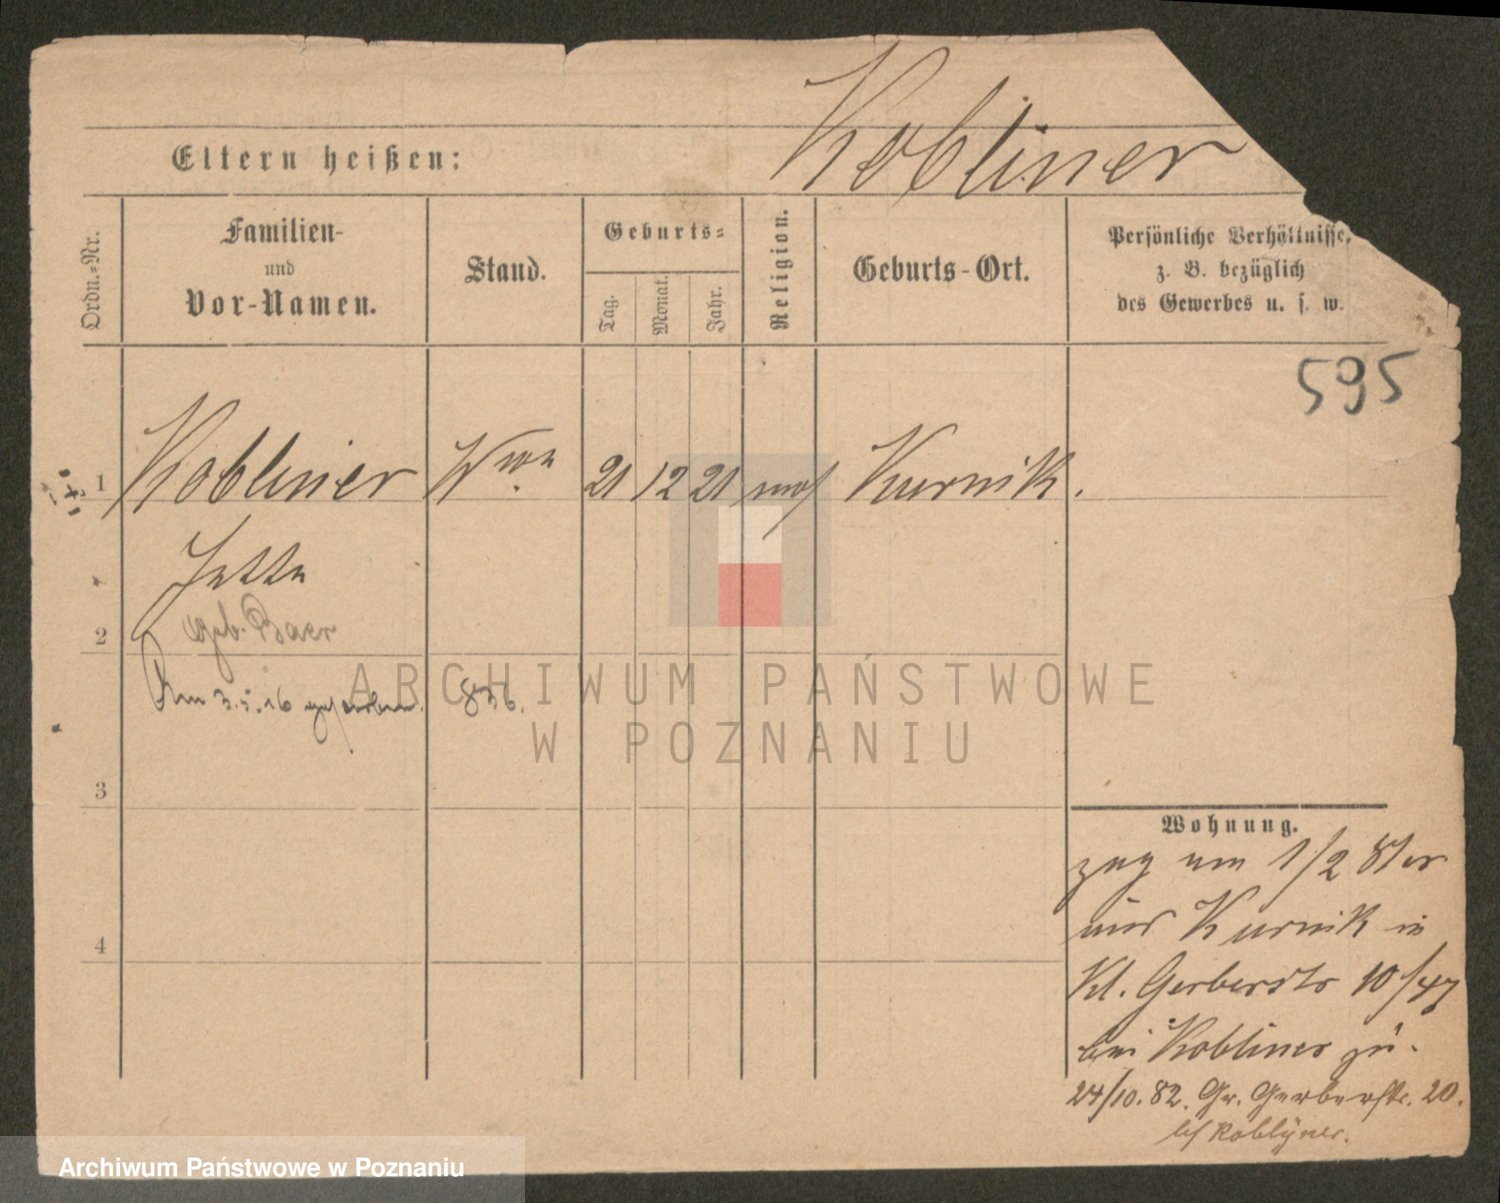 Kobliner
Eltern heißen:
Ordn.-Nr.
Familien-
und
Vor-Namen.
Stand.
Geburts-
Tag.
Monat.
Jahr.
Religion.
Geburts-Ort.
Persönliche Verhältnisse,
z. B. bezüglich
des Gewerbes u. s. w.
595
1 Kobliner Wwe 21 12 21 mos Kurnik.
Jette
2 geb. Baer
Am 3.5.16 gestorben. 836.
3
4
Wohnung.
zog am 1/2 81 er
aus Kurnik in
Kl. Gerberstr 10/47
bei Kobliner zu.
24/10.82. Gr. Gerberstr. 20.
bei Koblyner.
ARCHIWUM PAŃSTWOWE
W POZNANIU
Archiwum Państwowe w Poznaniu